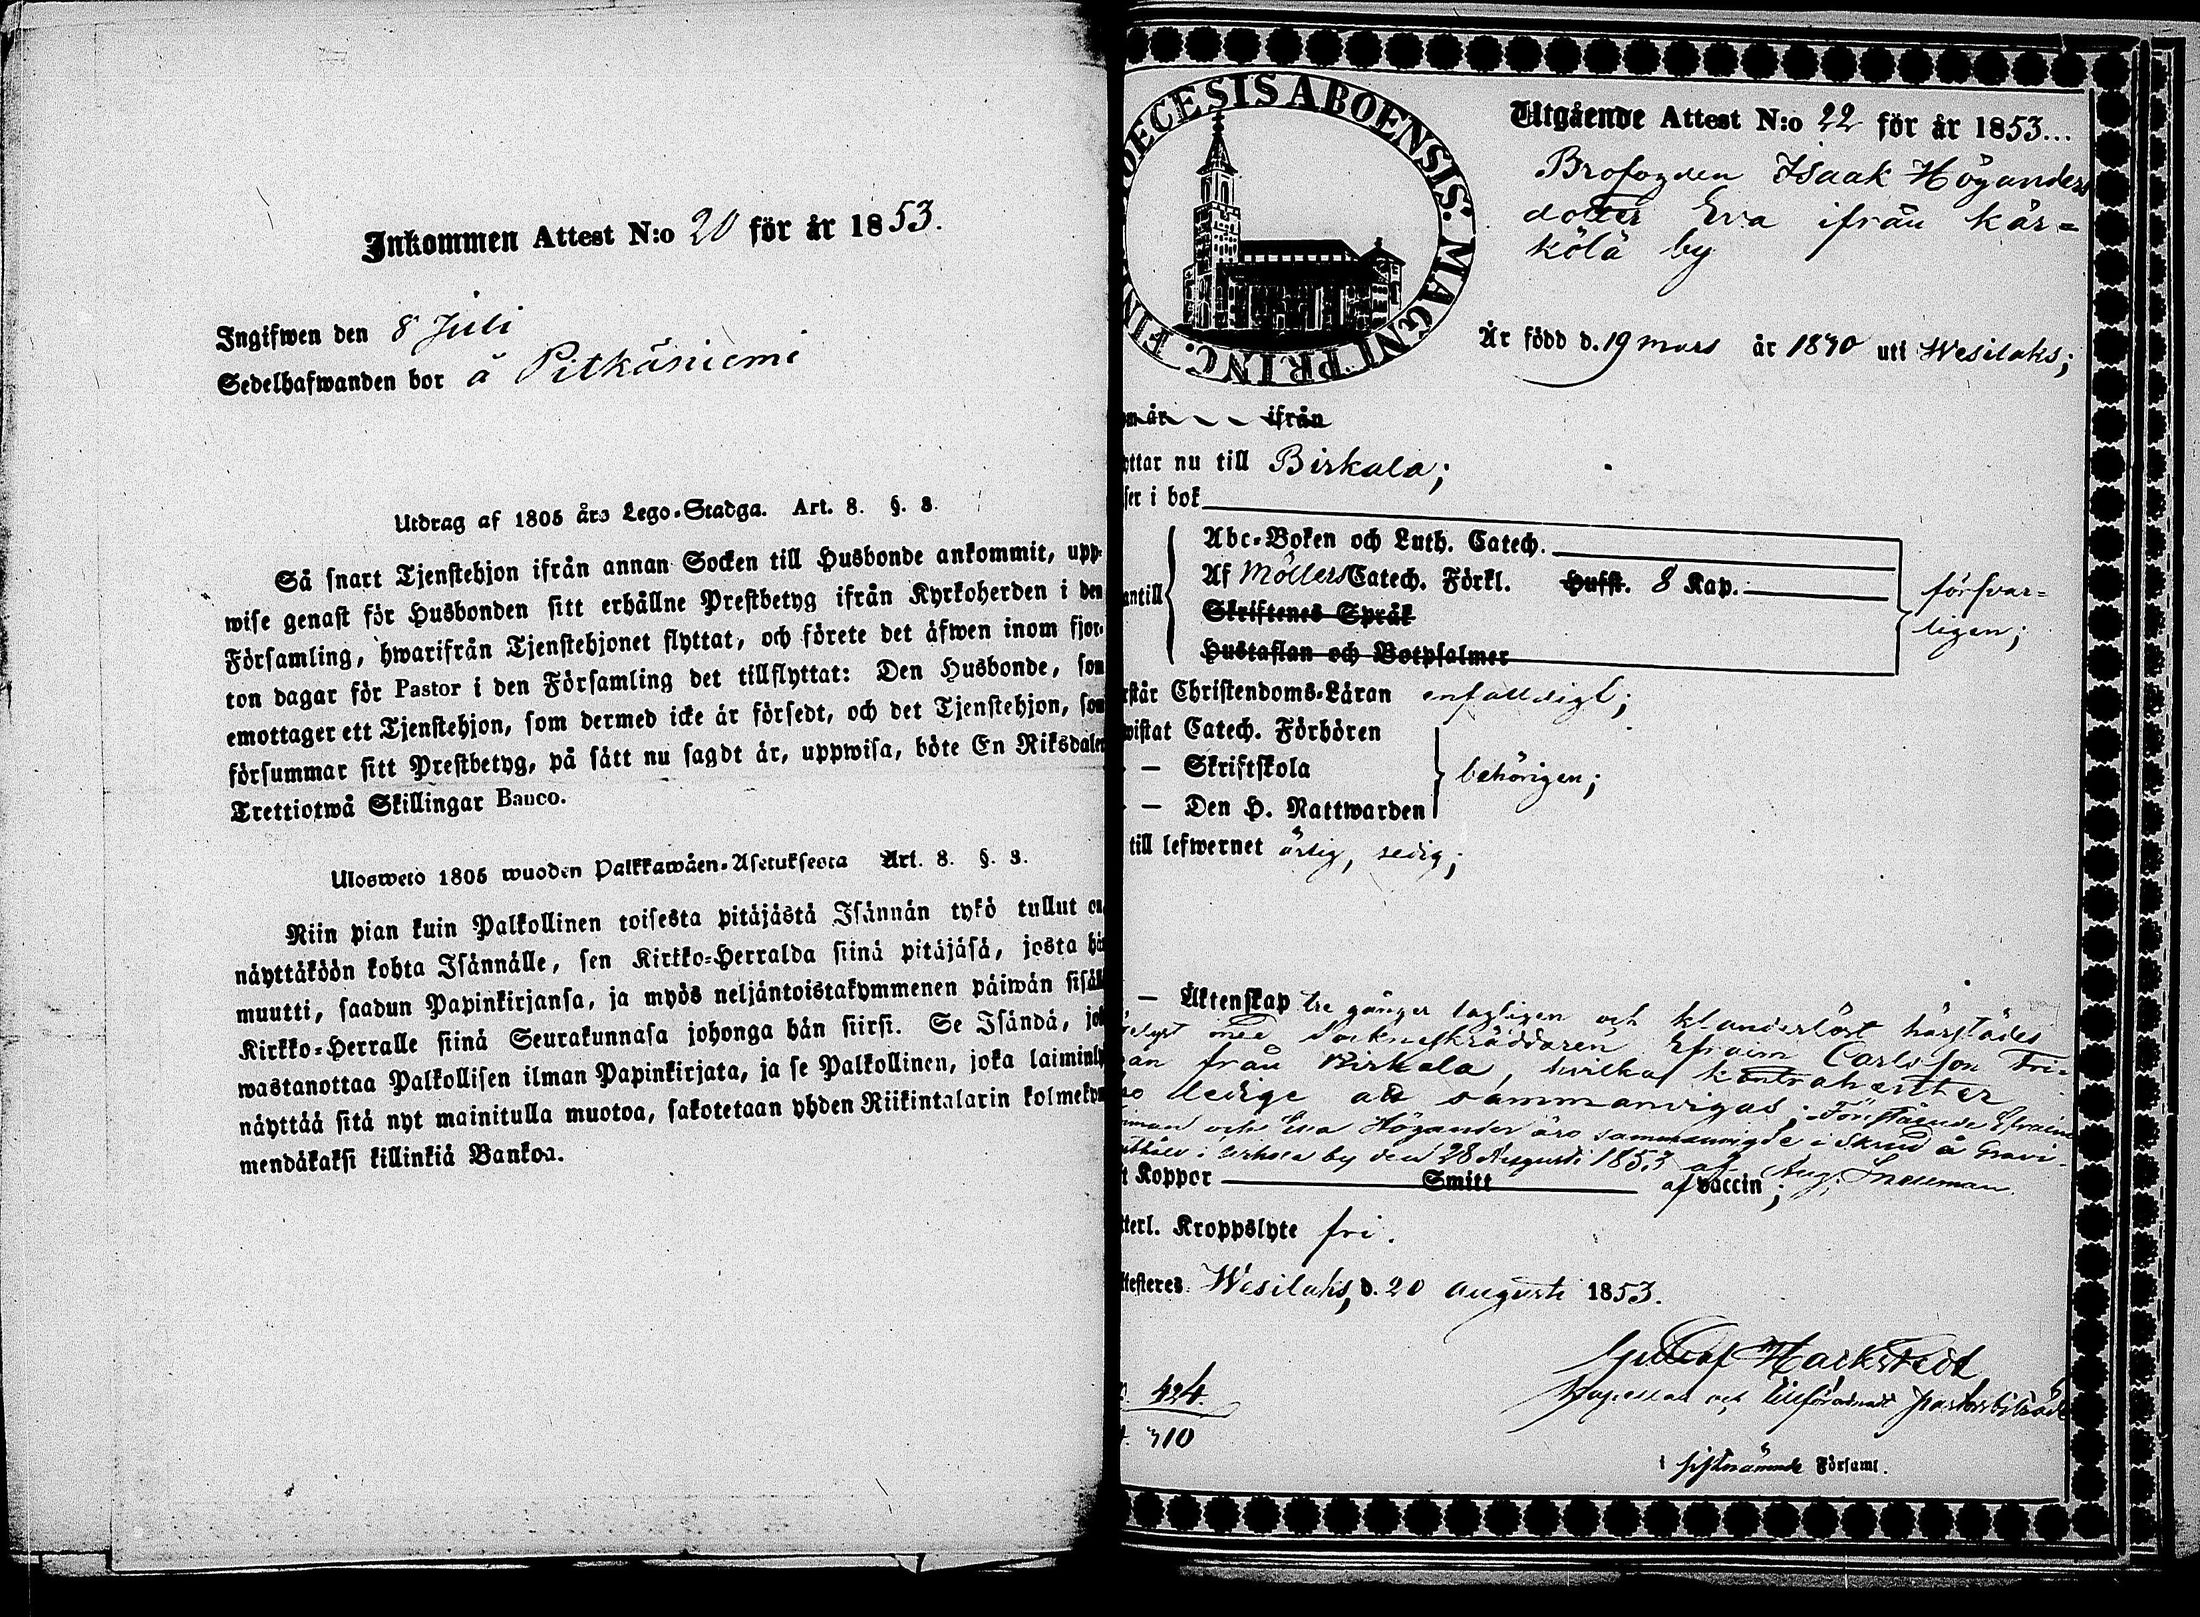 Inkommen Attest N:o 20 för år 1853.
Ingifwen den 8 Juli
Sedelhafwanden bor å Pitkäniemi
Utdrag af 1805 års Lego-Stadga. Art. 8. §. 3.
Så snart Tjenstehjon ifrån annan Socken till Husbonde ankommit, upp-
wise genast för Husbonden sitt erhållne Prestbetyg ifrån Kyrkoherden i den
Församling, hwarifrån Tjenstehjonet flyttat, och förete det äfwen inom fjor-
ton dagar för Pastor i den Församling det tillflyttat: Den Husbonde, som
emottager ett Tjenstehjon, som dermed icke är försedt, och det Tjenstehjon, som
försummar sitt Prestbetyg, på sätt nu sagdt är, uppwisa, böte En Riksdaler
Trettiotwå Skillingar Banco.
Ulosweto 1805 wuoden Palkkawäen-Asetuksesta Art. 8. §. 3.
Niin pian kuin Palkollinen toisesta pitäjästä Isännän tykö tullut on,
näyttäköön kohta Isännälle, sen Kirkko-Herralda siinä pitäjäsä, josta hän
muutti, saadun Papinkirjansa, ja myös neljäntoistakymmenen päiwän sisäll
Kirkko-Herralle siinä Seurakunnasa johonga hän siirsi. Se Isändä, jok
wastanottaa Palkollisen ilman Papinkirjata, ja se Palkollinen, joka laiminly
näyttää sitä nyt mainitulla muotoa, sakotetaan yhden Riikintalarin kolmekym
mendäkaksi killinkiä Bankoa.
DECESIS ABOENSIS. MAGNI PRINC. FIN
Utgående Attest N:o 22 för år 1853...
Brofogden Isaak Höganders
dotter Eva ifrån Kär=
kölä by
Är född d. 19 mars år 1830 uti Wesilaks;
om år ifrån
ottar nu till Birkala;
ser i bok
Abc-Boken och Luth. Catech.
antill Af Möllers Catech. Förkl. Husst. 8 Kap. försvar=
Skriftenes Språk ligen;
Hustaflan och Botpsalmer
rstår Christendoms-Läran enfaldigt;
wistat Catech. Förhören
— Skriftskola behörigen;
— Den H. Nattwarden
till lefwernet ärlig, sedig;
— Äktenskap tre gånger lagligen och klanderlöst härstädes
lyst med Sockneskräddaren Efraim Carlsson Fri-
man från Birkala, hvilka kontrahenter
ro ledige att sammanvigas; Förestående Efraim
riman och Eva Högander äro sammanvigde i
by den 28 Augusti 1853 af Aug. Snellman.
t Koppor Smitt af vaccin;
tterl. Kroppslyte fri.
ttesteres Wesilaks, d. 20 augusti 1853.
Gustaf Hackstedt
Kapellan och tillförordnadt pastorsbiträde
424.
310
i sistnämnde Församl.